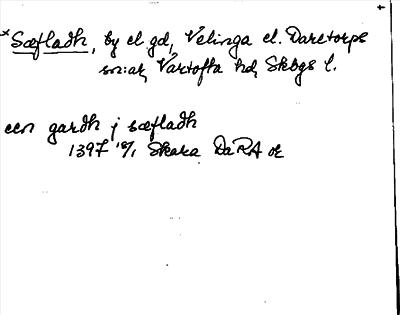 *Sæfladh, by el gd, Velinga el. Daretorps
snar, Vartofta hd, Skbgs l.
een gardh j sæfladh
1397 19/1 Skara DaRA or